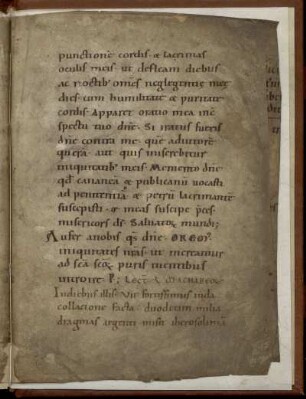 punctionẽ cordis & lacrimas
oculis meis ut defleam diebus
ac noctib; om̃s neglegentias meas
dies cum humilitate & puritate
cordis Apparet oratio mea in c̃
spectu tuo dñe Si iratus fueris
dñe contra me quẽ adiutorẽ
querã aut quis miserebitur
iniquitatib; meis Memento dñe
qd̃ cananeã & publicanũ uocasti
ad penitentiã & petrũ lacrimante
suscepisti & meas suscipe p̃ces
misericors d̃s Saluator mundi;
Aufer a nobis q̃s dñe OR̃GO
iniquitates nr̃as ut mereamur
ad sc̃a sc̃oꝝ puris mentibus
introire P; LEC̃T. MACHABEOꝝ
In diebus illis Vir fortissimus iuda
collatione facta duodecim milia
dragmas argenti misit iherosolima